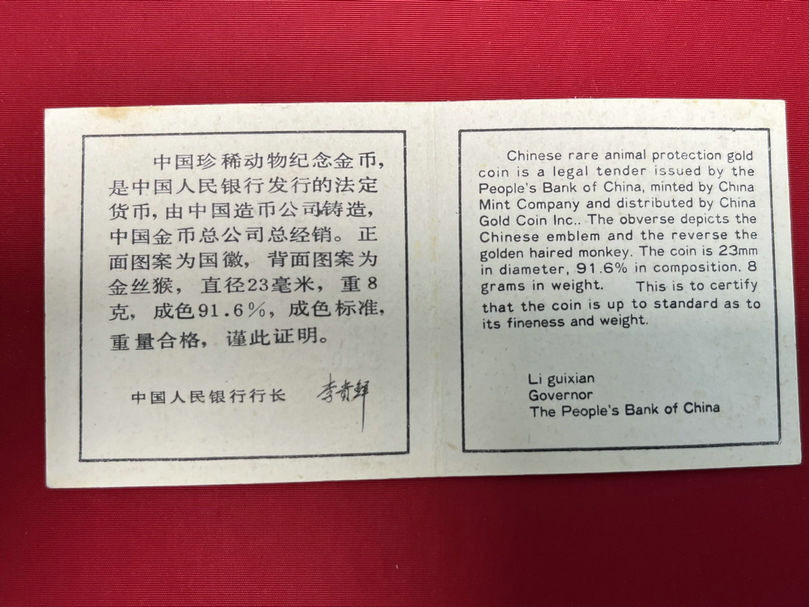 中国珍稀动物纪念金币，
是中国人民银行发行的法定
货币，由中国造币公司铸造，
中国金币总公司总经销。正
面图案为国徽，背面图案为
金丝猴，直径23毫米，重8
克，成色91.6%，成色标准，
重量合格，谨此证明。
中国人民银行行长 李贵鲜
Chinese rare animal protection gold
coin is a legal tender issued by the
People's Bank of China, minted by China
Mint Company and distributed by China
Gold Coin Inc.. The obverse depicts the
Chinese emblem and the reverse the
golden haired monkey. The coin is 23mm
in diameter, 91.6% in composition. 8
grams in weight. This is to certify
that the coin is up to standard as to
its fineness and weight.
Li guixian
Governor
The People's Bank of China